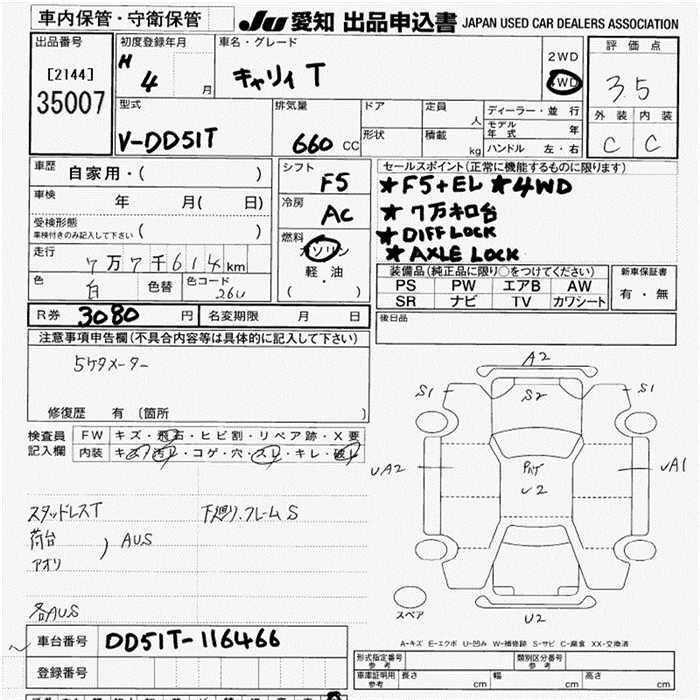 車内保管・守衛保管
JU 愛知 出品申込書 JAPAN USED CAR DEALERS ASSOCIATION
出品番号
[2144]
35007
初度登録年月
H 4 月
車名・グレード
キャリィ T
2WD
4WD
評価点
3.5
外装 内装
C C
型式
V-DD51T
排気量
660 CC
ドア
形状
定員
人
積載
kg
ディーラー・並行
モデル年式 年
ハンドル 左・右
車歴
自家用・( )
車検
年 月( 日)
受検形態
車検付きのみ記入して下さい ( )
走行
7万7千614km
色
白
色替
色コード
26U
シフト
F5
冷房
AC
燃料
ガソリン
軽・油
( )
セールスポイント(正常に機能するものに限ります)
★F5+EL ★4WD
★7万キロ台
★DIFF LOCK
★AXLE LOCK
装備品(純正品に限り○をつけてください)
PS PW エアB AW
SR ナビ TV カワシート
新車保証書
有・無
R券 3080 円
名変期限 月 日
後日品
注意事項申告欄(不具合内容等は具体的に記入して下さい)
5ケタメーター
修復歴 有 (箇所
検査員
記入欄
FW キズ・飛石・ヒビ割・リペア跡・X要
内装 キズ・汚れ・コゲ・穴・スレ・キレ・破れ
スタッドレスT
下廻り.フレームS
荷台
アオリ
) AUS
各AUS
A2
S1
S2
S1
UA2
PAT
U2
UA1
スペア
U2
A-キズ E-エクボ U-凹み W-補修跡 S-サビ C-腐食 XX-交換済
車台番号 DD51T-116466
登録番号
形式指定番号
参考
類別区分番号
参考
車庫証明用
参考
長さ cm
幅 cm
高さ cm